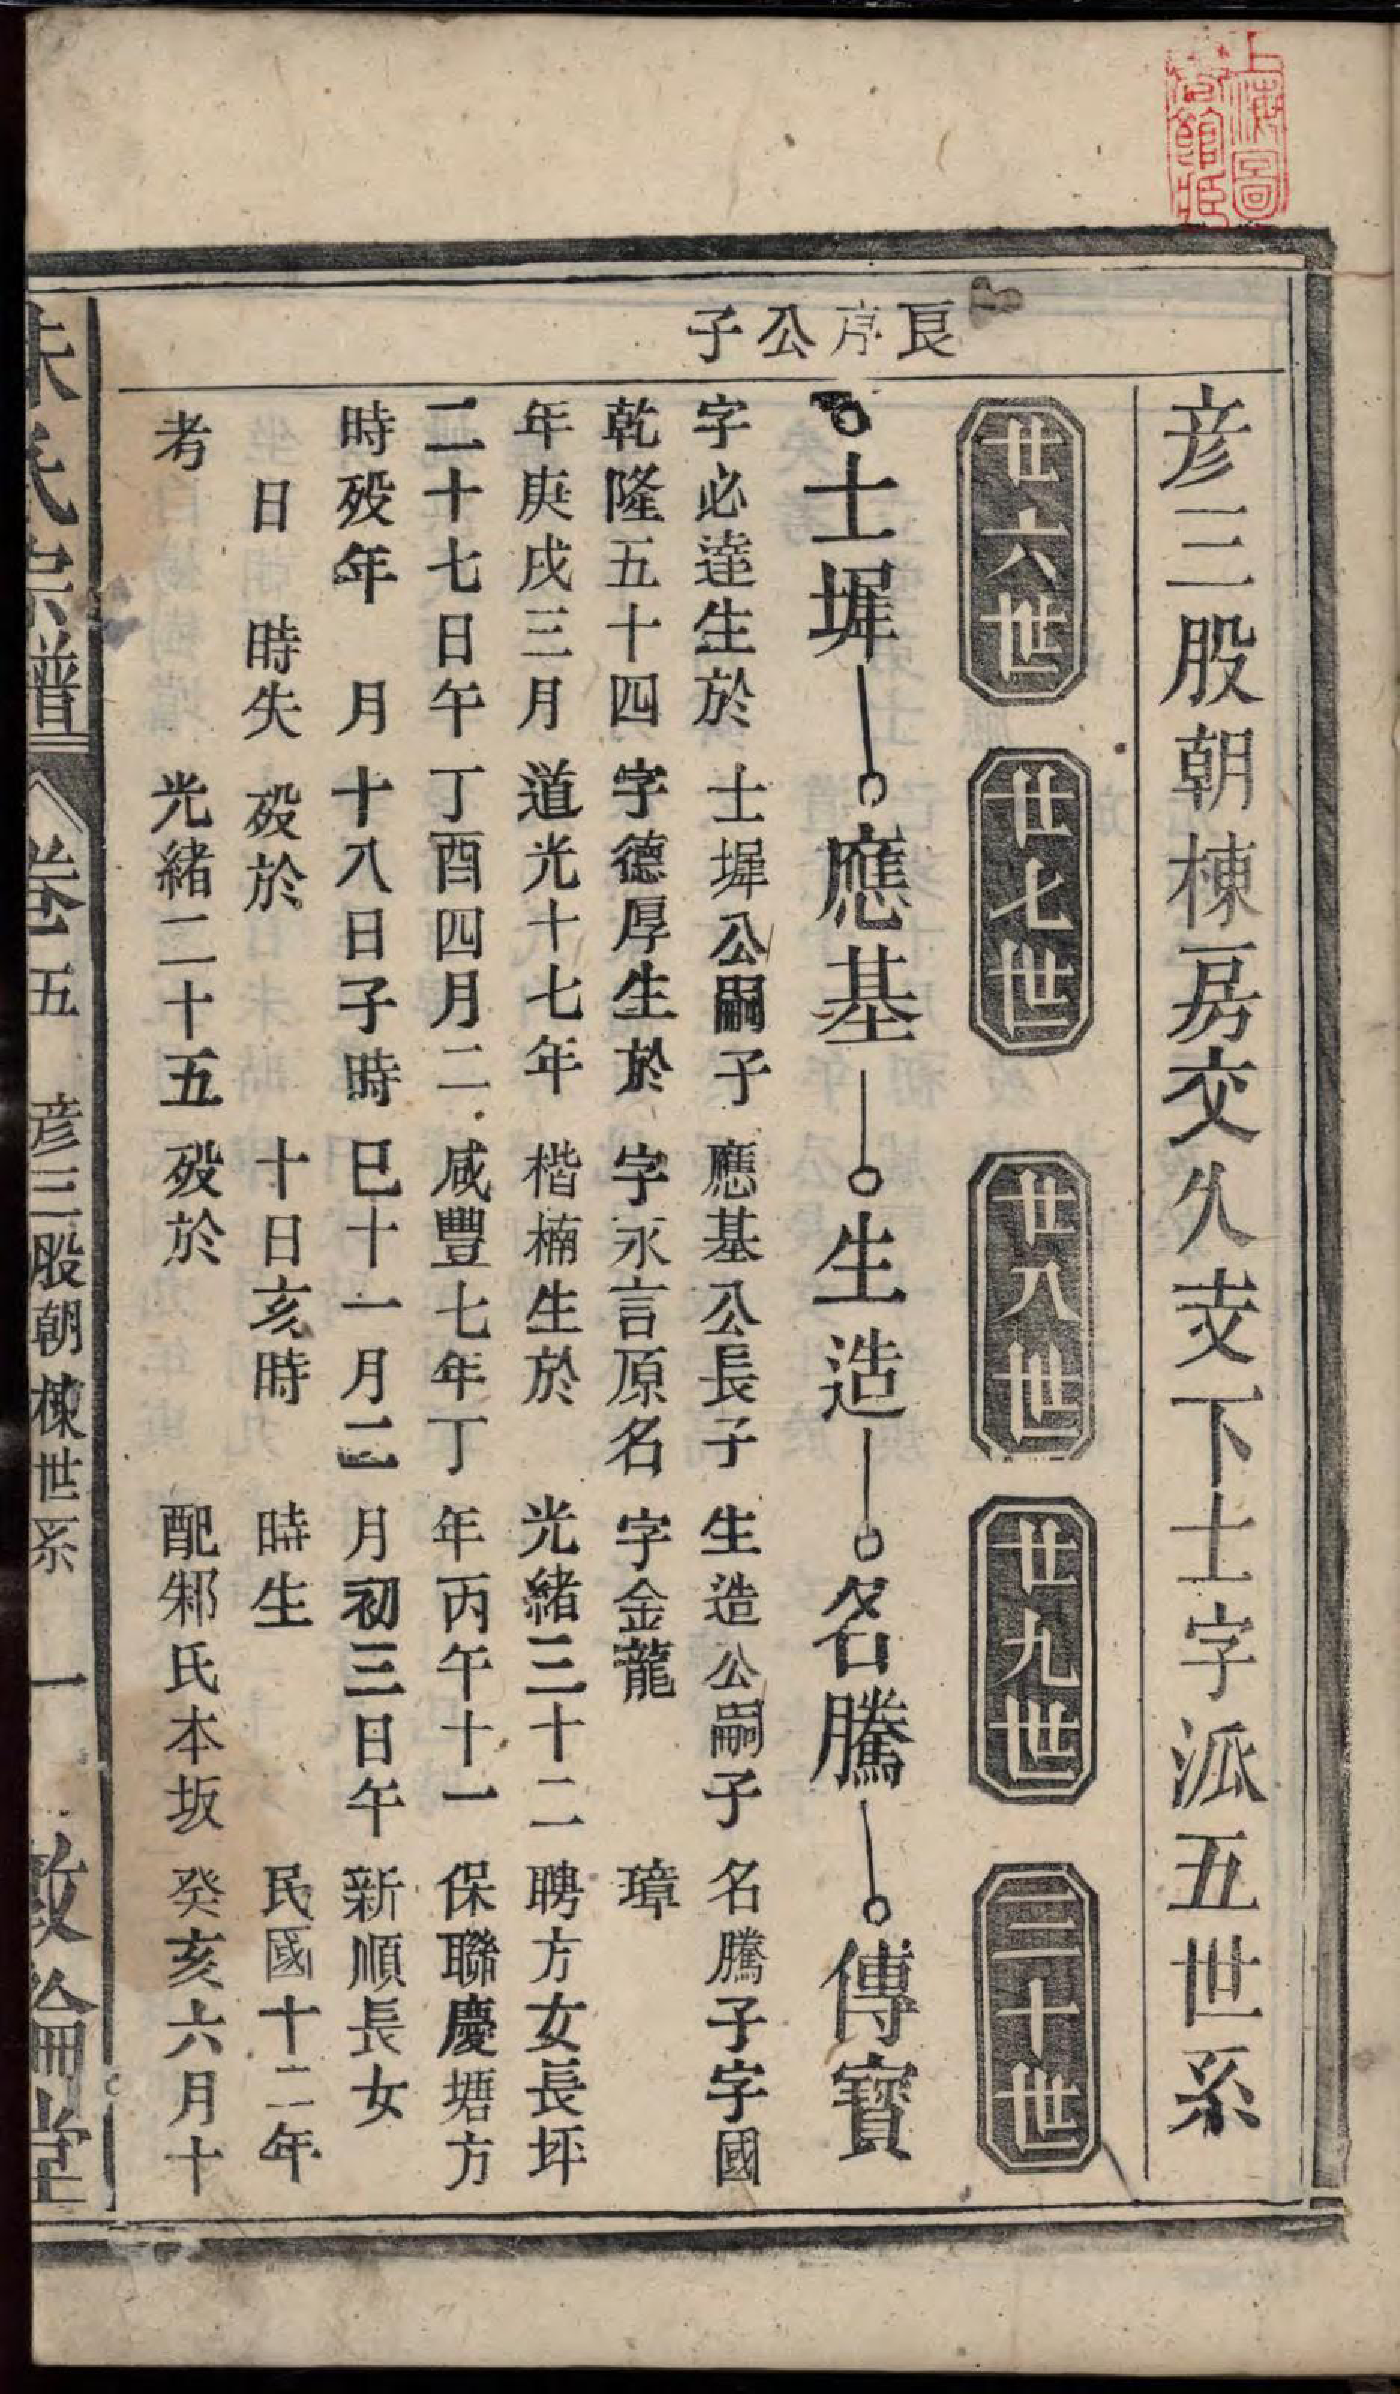 上海圖
書館藏
彦三股朝棟房交久支下士字派五世系
廿六世
廿七世
廿八世
廿九世
三十世
良序公子
士墀
應基
生造
名騰
傳寶
字必達生於
乾隆五十四
年庚戌三月
二十七日午
時殁年　月
日　時失
考
士墀公嗣子
字德厚生於
道光十七年
丁酉四月二
十八日子時
殁於
光緒二十五
應基公長子
字永言原名
楷楠生於
咸豐七年丁
巳十一月二
十日亥時
殁於
生造公嗣子
字金龍
光緒三十二
年丙午十一
月初三日午
時生
配邾氏本坂
名騰子字國
璋
聘方女長坪
保聯慶塘方
新順長女
民國十二年
癸亥六月十
朱氏宗譜
卷五　彦三股朝棟世系　一　敦倫堂